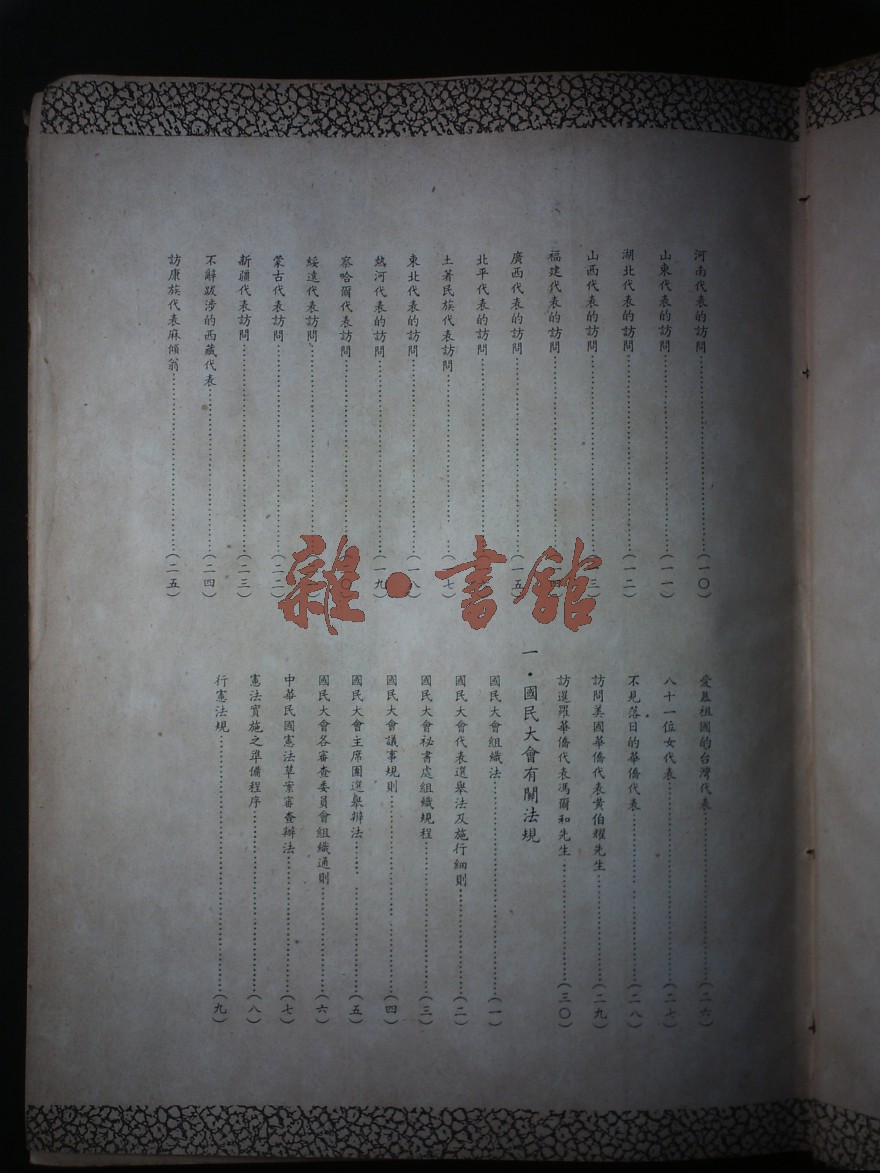 河南代表的訪問……(一〇)
山東代表的訪問……(一一)
湖北代表的訪問……(一二)
山西代表的訪問……(一三)
福建代表的訪問……
廣西代表的訪問……(一五)
北平代表的訪問……
土著民族代表訪問……(一七)
東北代表的訪問……(一八)
熱河代表的訪問……(一九)
察哈爾代表訪問……
綏遠代表訪問……
蒙古代表訪問……(二二)
新疆代表訪問……(二三)
不辭跋涉的西藏代表……(二四)
訪康族代表麻傾翁……(二五)
愛慕祖國的台灣代表……(二六)
八十一位女代表……(二七)
不見落日的華僑代表……(二八)
訪問美國華僑代表黃伯耀先生……(二九)
訪暹羅華僑代表馮爾和先生……(三〇)
一・國民大會有關法規
國民大會組織法……(一)
國民大會代表選舉法及施行細則……(二)
國民大會祕書處組織規程……(三)
國民大會議事規則……(四)
國民大會主席團選舉辦法……(五)
國民大會各審查委員會組織通則……(六)
中華民國憲法草案審查辦法……(七)
憲法實施之準備程序……(八)
行憲法規……(九)
雜・書館